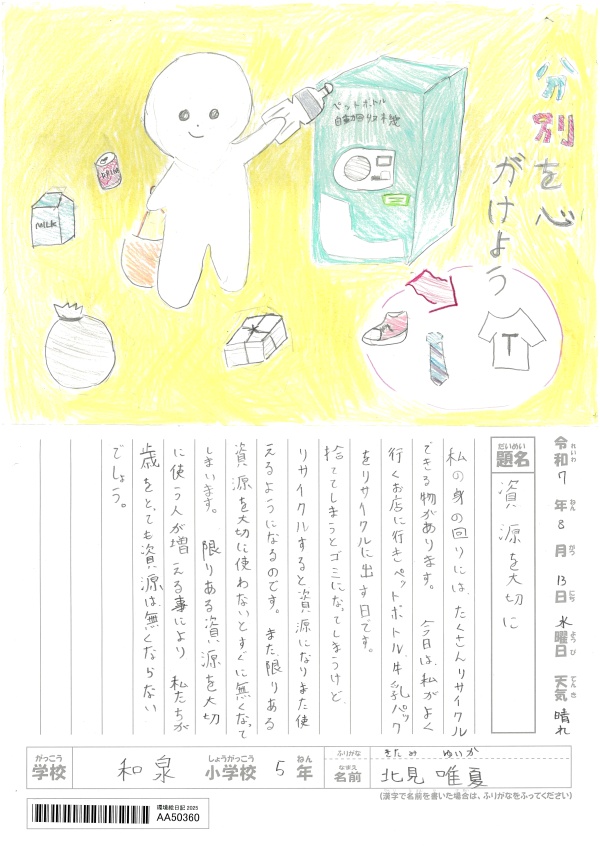 分別を心
がけよう
ペットボトル
自動回収機
DRINK
MILK
T
令和7年8月13日水曜日 天気 晴れ
れいわ ねん がつ にち ようび てんき
だいめい
題名 資源を大切に
私の身の回りには、たくさんリサイクル
できる物があります。 今日は、私がよく
行くお店に行きペットボトル、牛乳パック
をリサイクルに出す日です。
捨ててしまうとゴミになってしまうけど、
リサイクルすると資源になりまた使
えるようになるのです。また、限りある
資源を大切に使わないとすぐに無くなって
しまいます。 限りある資源を大切
に使う人が増える事により 私たちが
歳をとっても資源は、無くならない
でしょう。
がっこう しょうがっこう ねん
学校 和泉 小学校 5年
ふりがな きたみ ゆいか
なまえ
名前 北見 唯夏
(漢字で名前を書いた場合は、ふりがなをふってください)
環境絵日記 2025
AA50360